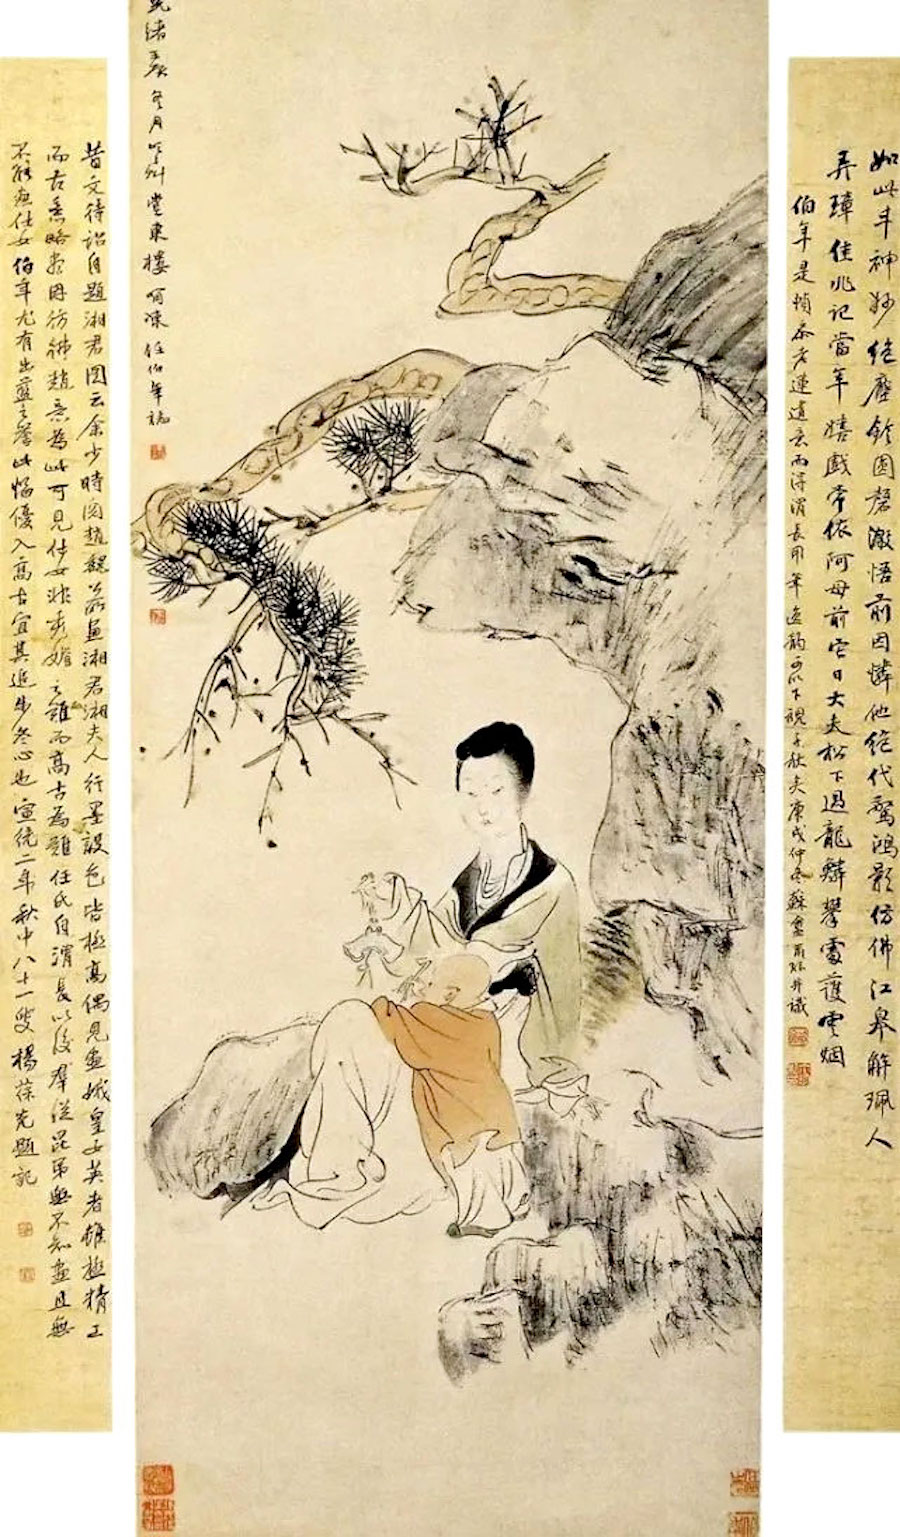 如此丰神妙絕塵鈴圓磬澈悟前因憐他絕代驚鴻影仿佛江皋解珮人
弄璋佳兆記當年嬉戲常依阿母前它日大夫松下過龍鱗攀處護雲烟
伯年是幀參老蓮遺意而得渭長用筆逸韻可以下視千秋矣庚戌仲冬蘇盦并識
緒冬月堂東樓呵凍任伯年誌
昔文待詔自題湘君圖云余少時閱趙魏公所畫湘君湘夫人行墨設色皆極高偶見畫娥皇女英者雖極精工
而古意略盡因彷彿趙意為此可見仕女非秀媚之難而高古為難任氏自渭長以後群從昆弟無不知畫且無
不能畫仕女伯年尤有出藍之譽此幅優入高古宜其進步冬心也宣統二年秋中八十一叟楊葆光題記